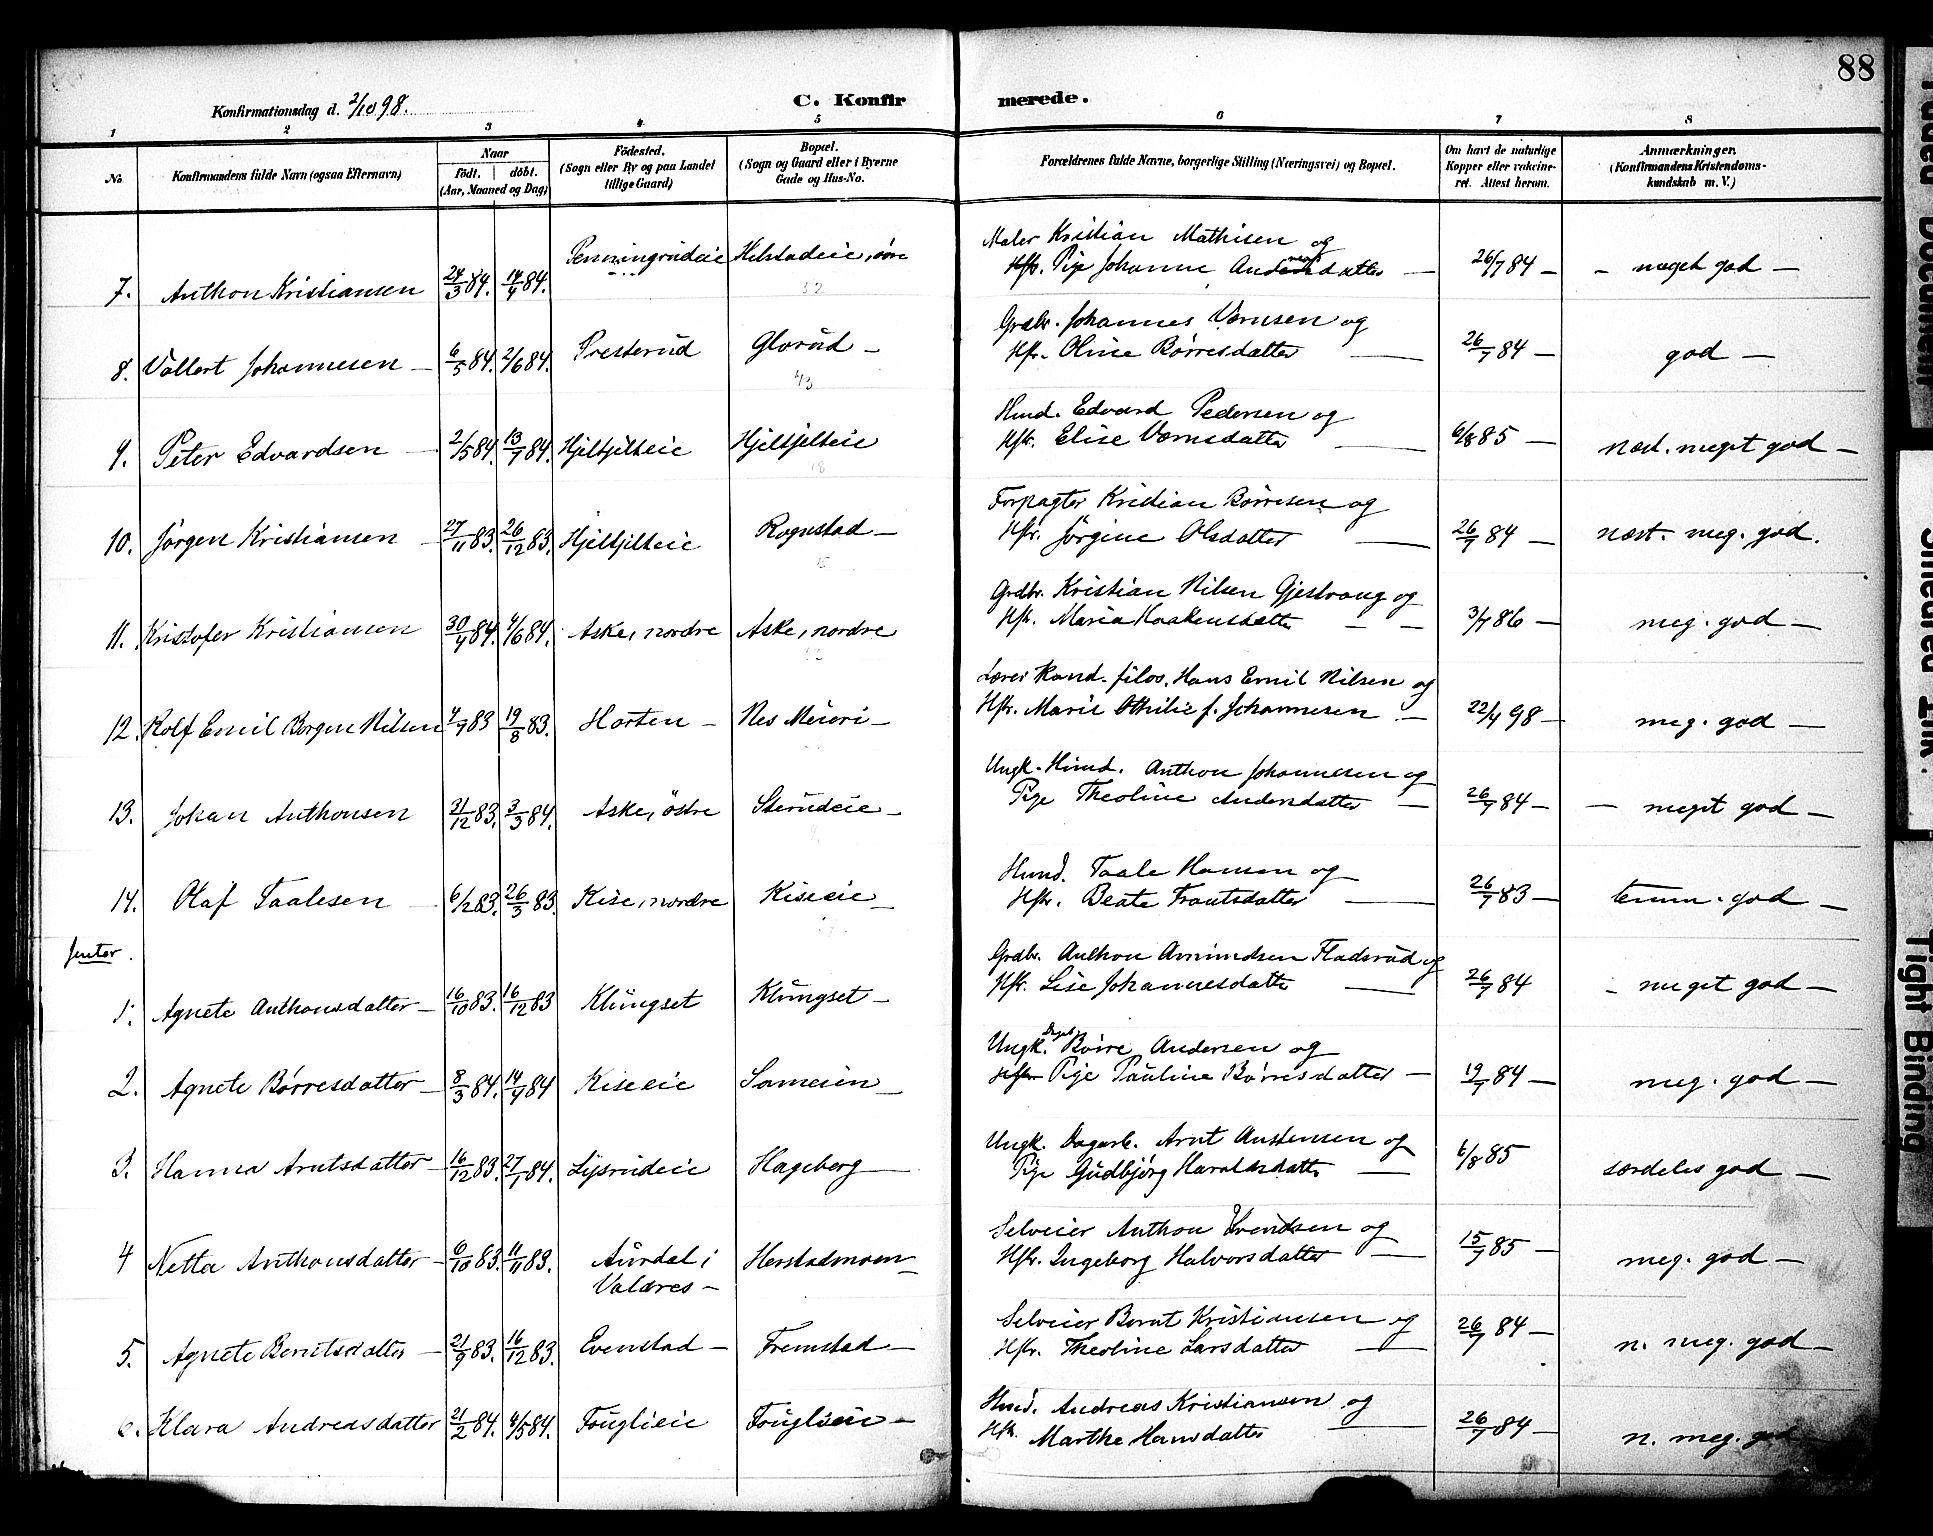 88
Konfirmationsdag d. 2/10 98.
C. Konfirmerede.
1 2 3 4 5 6 7 8
No
Konfirmandens fulde Navn (ogsaa Efternavn)
Naar
Födt. döbt.
(Aar, Maaned og Dag)
Födested.
(Sogn eller By og paa Landet
tillige Gaard)
Bopæl.
(Sogn og Gaard eller i Byerne
Gade og Hus-No.
Forældrenes fulde Navne, borgerlige Stilling (Næringsvei) og Bopæl.
Om havt de naturlige
Kopper eller vakcine-
ret. Attest herom.
Anmærkninger.
(Konfirmandens Kristendoms-
kundskab m. V.)
Maler Kristian Mathisen og
7. Anthon Kristiansen 24/3 84. 14/4 84. Penningrudeie Helstadeie, Hfr. Pige Johanne Andersdatter — 26/7 84 — – meget god —
Grdbr. JohannesVærnsen og
8. Vallert Johannesen — 6/5 84. 2/6 84. Presterud Glorud — Hfr. Oline Börresdatter — 26/7 84 — god —
Hmd. Edvard Pedersen og
9. Peter Edvardsen — 2/5 84. 13/7 84. Hjeltjelteie Hjeltjelteie Hfr. Elise Værnsdatter — 6/8 85 — næst. meget god —
Forpagter Kristian Börresen og
10. Jörgen Kristiansen — 27/11 83. 26/12 83. Hjeltjelteie Rognstad — Hfr. Jörgine Olsdatter — 26/7 84 — næst. meg. god.
Grdbr. Kristian Nilsen Gjestvang og
11. Kristofer Kristiansen 30/4 84. 4/6 84. Aske, nordre Aske, nordre Hfr. Maria Haakensdatter — — 3/7 86 — meg. god —
Lærer Kand. filos. Hans Emil Nilsen og
12. Rolf Emil Borgen Nilsen 4/7 83 19/8 83. Horten — Nes Meieri — Hfr. Marie Othilie f. Johannesen — 22/4 98 — meg. god —
Ungk. Hmd. Anthon Johannesen og
13. Johan Anthonsen 31/12 83. 3/3 84. Aske, östre Sterudeie — Pige Theoline Andersdatter — 26/7 84 — — meget god —
Hmd. Taale Hansen og
14. Olaf Taalesen — 6/2 83. 26/3 83. Kise, nordre Kiseeie — Hfr. Beate Frantsdatter — 26/7 83 — temm. god —
Jenter.
Grdbr. Anthon Amundsen Fladsrud og
1. Agnete Anthonsdatter — 16/10 83. 16/12 83 Klungset Klungset — Hfr. Lise Johannesdatter — 26/7 84 – meget god —
Ungk. Börre Andersen og
2. Agnete Börresdatter — 8/3 84. 14/4 84 Kiseeie Sameien — Hfr. Pige Pauline Börresdatter — 19/7 84 — meg. god —
Ungk. Dagarb. Arnt Austensen og
3. Hanna Arntsdatter — 16/12 83. 27/1 84. Lysrudeie Hageberg — Pige Gudbjörg Haraldsdatter — 6/8 85 særdeles god —
Selveier Anthon Svendsen og
4 Netta Anthonsdatter — 6/10 83. 11/11 83. Aurdal i Herstadmoen — Hfr. Ingeborg Halvorsdatter — 15/7 85 — meg. god —
Valdres —
Selveier Bernt Kristiansen og
5. Agnete Berntsdatter — 21/9 83. 16/12 83. Evenstad — Fremstad — Hfr. Theoline Larsdatter — 26/7 84 — n. meg. god —
Hmd. Andreas Kristiansen og
6. Klara Andreasdatter 21/2 84. 4/5 84. Fouglieie Fouglieie — Hfr. Marthe Hansdatter — 26/7 84 — n. meg. god
Smeared Ink.
Tight Binding